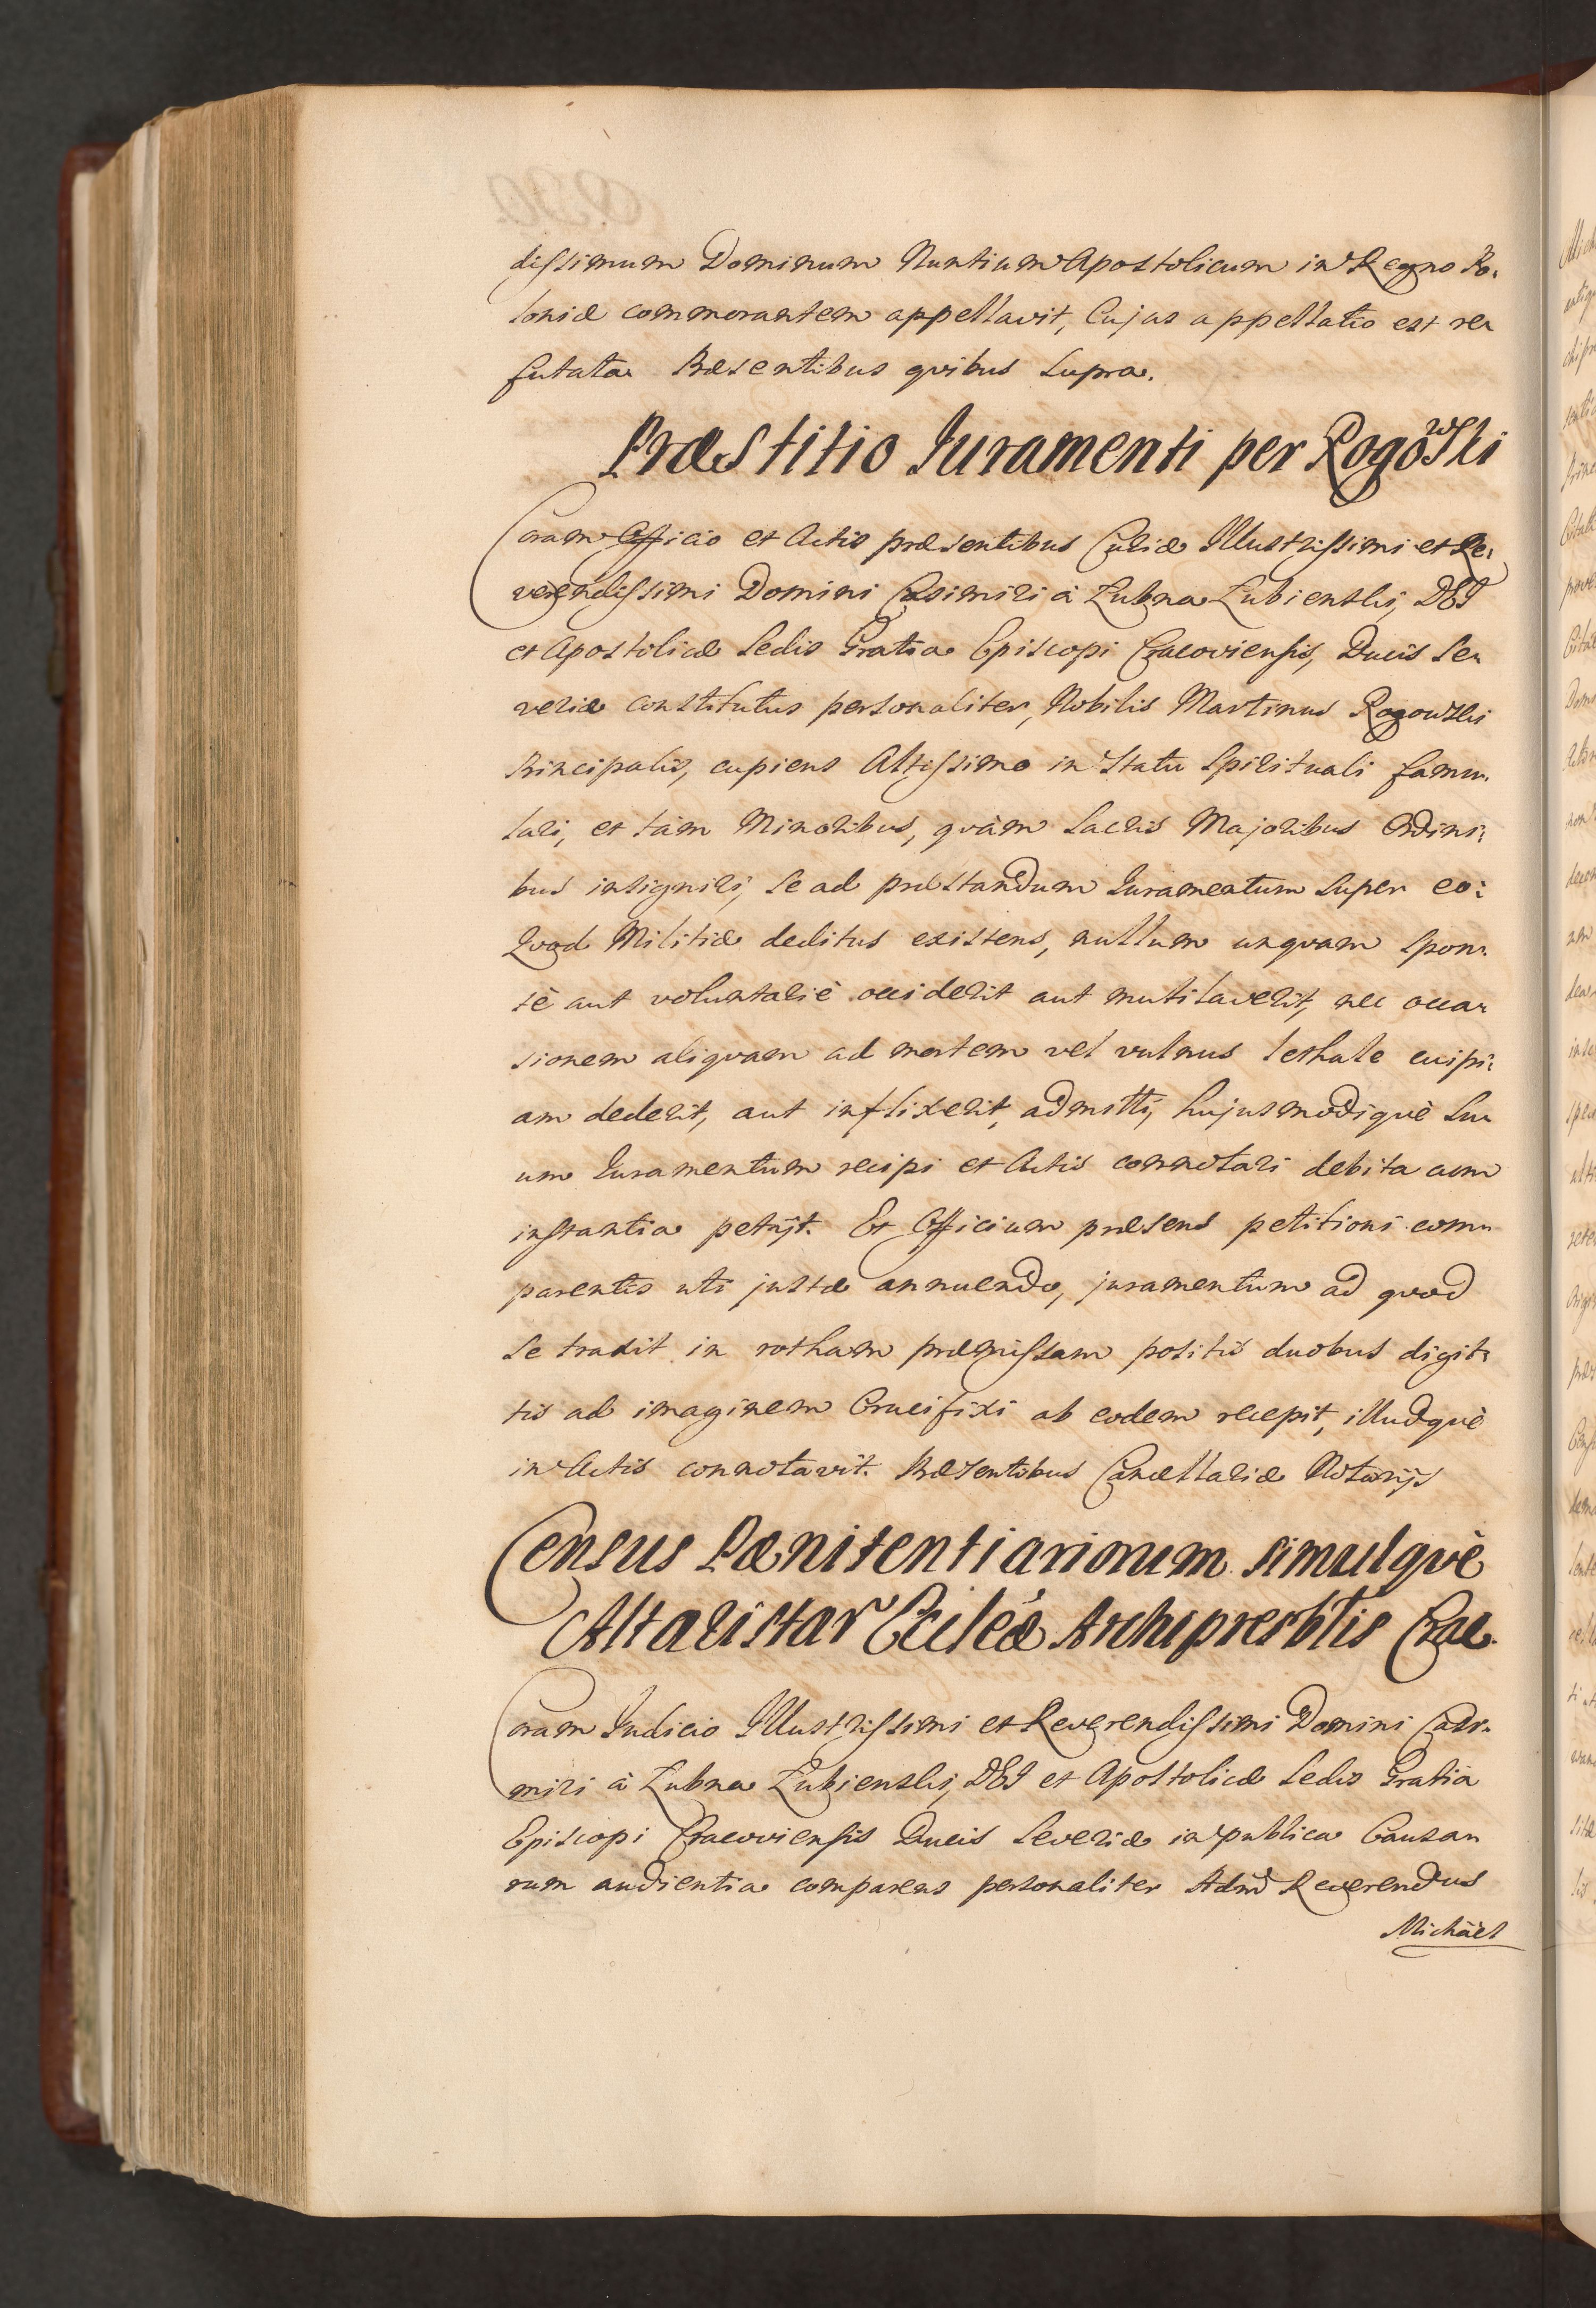 dissimum Dominum Nuntium Apostolicum in Regno Po:
loniæ commorantem appellavit, Cujus appellatio est re:
futata Præsentibus quibus supra.
Præstitio Juramenti per Rogowski
Coram Officio et Actis præsentibus Curiæ Illustrissimi et Re:
verendissimi Domini Casimiri à Łubna Łubienski, DEI
et Apostolicæ Sedis Gratia Episcopi Cracoviensis, Ducis Se:
veriæ constitutus personaliter, Nobilis Martinus Rogowski
Principalis, cupiens Altissimo in Statu Spirituali famu:
lari, et tàm Minoribus, quàm Sacris Majoribus Ordini:
bus insigniri, se ad præstandum Juramentum super eo:
Quod Militiæ deditus existens, nullum unquam spon:
tè aut voluntariè occiderit aut mutilaverit, nec occa:
sionem aliquam ad mortem vel vulnus lethale cuipi:
am dederit, aut inflixerit, admitti, hujusmodiquè su:
um Juramentum recipi et Actis connotari debita cum
instantia petijt. Et Officium præsens petitioni com:
parentis uti justæ annuendo, juramentum ad quod
se traxit in rotham præmissam positis duobus digit:
tis ad imaginem Crucifixi ab eodem recepit, illudquè
in Actis connotavit. Præsentibus Cancellariæ Notarijs
Census Pænitentiariorum simulquè
Altaristar Eccleæ Archipresbtis Crac.
Coram Judicio Illustrissimi et Reverendissimi Domini Casi:
miri à Łubna Łubienski, DEI et Apostolicæ Sedis Gratia
Episcopi Cracoviensis Ducis Severiæ in publica Causa:
rum audientia comparens personaliter Admd Reverendus
Michäel